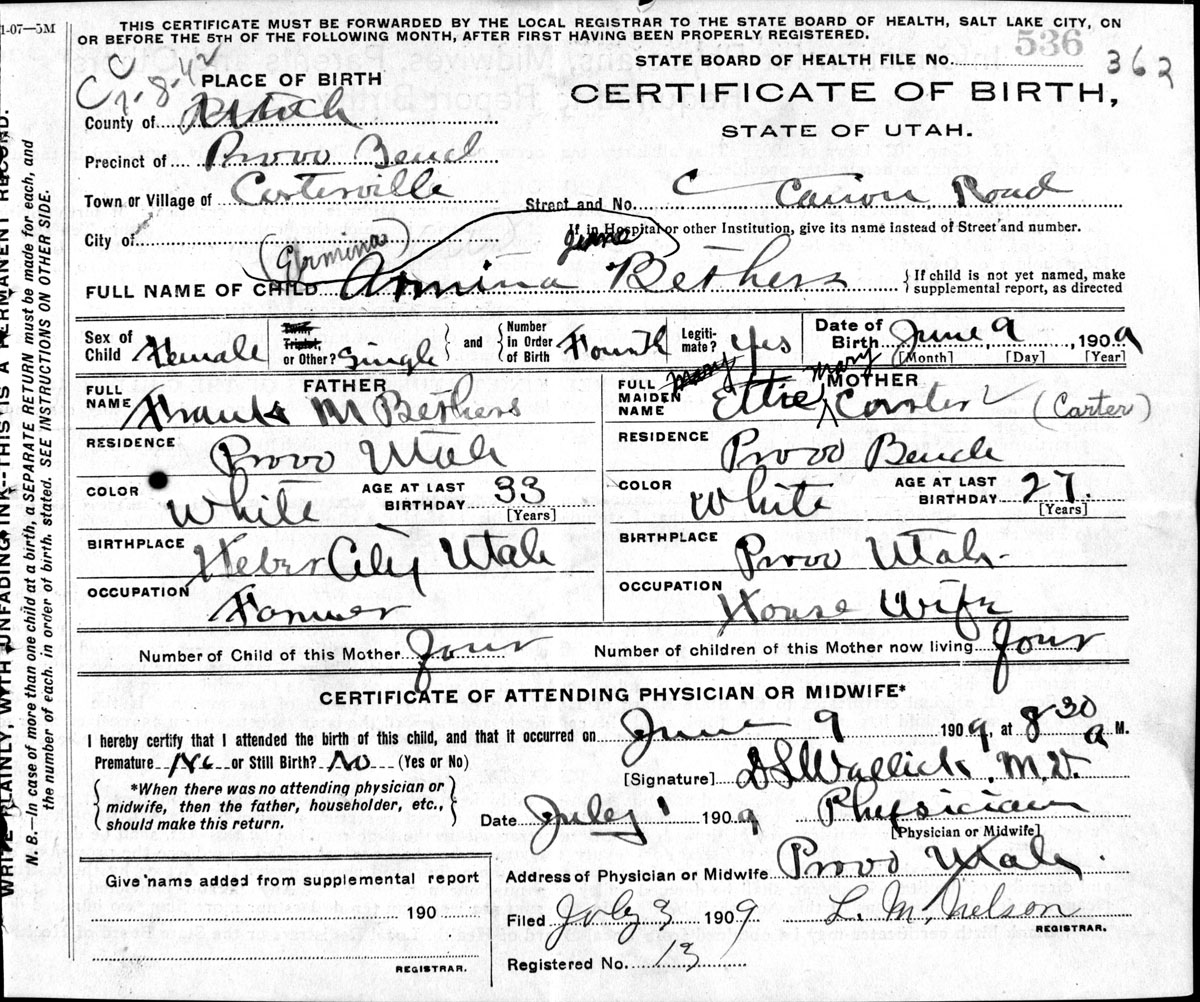 1-07—5M
THIS CERTIFICATE MUST BE FORWARDED BY THE LOCAL REGISTRAR TO THE STATE BOARD OF HEALTH, SALT LAKE CITY, ON
OR BEFORE THE 5TH OF THE FOLLOWING MONTH, AFTER FIRST HAVING BEEN PROPERLY REGISTERED.
536
STATE BOARD OF HEALTH FILE No. 362
PLACE OF BIRTH
CERTIFICATE OF BIRTH,
STATE OF UTAH.
County of Utah
Precinct of Provo Bench
Town or Village of Carterville
Street and No. Canon Road
City of
If in Hospital or other Institution, give its name instead of Street and number.
(Ermina) June
FULL NAME OF CHILD Armina Bethers
If child is not yet named, make
supplemental report, as directed
Sex of Child Female
Twin, Triplet, or Other? Single
and Number in Order of Birth Fourth
Legiti-mate? Yes
Date of Birth June 9, 1909
[Month] [Day] [Year]
FATHER
FULL NAME Frank M Bethers
RESIDENCE Provo Utah
COLOR White
AGE AT LAST BIRTHDAY 33
[Years]
BIRTHPLACE Heber City Utah
OCCUPATION Farmer
MOTHER
FULL MAIDEN NAME Ettie Mary Carter (Carter)
RESIDENCE Provo Bench
COLOR White
AGE AT LAST BIRTHDAY 27.
[Years]
BIRTHPLACE Provo Utah
OCCUPATION House Wife
Number of Child of this Mother Four
Number of children of this Mother now living Four
CERTIFICATE OF ATTENDING PHYSICIAN OR MIDWIFE*
I hereby certify that I attended the birth of this child, and that it occurred on June 9 1909, at 8 30 a M.
Premature No or Still Birth? No (Yes or No)
*When there was no attending physician or
midwife, then the father, householder, etc.,
should make this return.
[Signature] D L Wallick M.D.
Date July 1 1909 Physician
[Physician or Midwife]
Address of Physician or Midwife Provo Utah.
Give name added from supplemental report
190
REGISTRAR.
Filed July 3 1909 L. M. Nelson
REGISTRAR.
Registered No. 13
WRITE PLAINLY, WITH UNFADING INK--THIS IS A PERMANENT RECORD.
N. B.—In case of more than one child at a birth, a SEPARATE RETURN must be made for each, and
the number of each, in order of birth, stated. SEE INSTRUCTIONS ON OTHER SIDE.